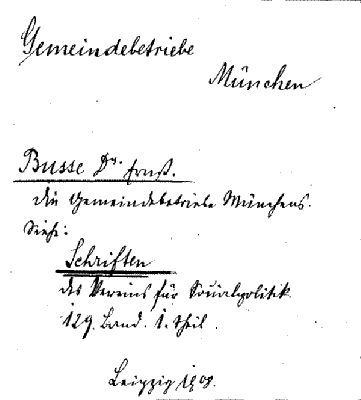 Gemeindebetriebe
München
Busse Dr. Ernst.
Die Gemeindebetriebe Münchens.
Siehe:
Schriften
des Vereins für Socialpolitik
129. Band. 1. Theil.
Leipzig 1908.